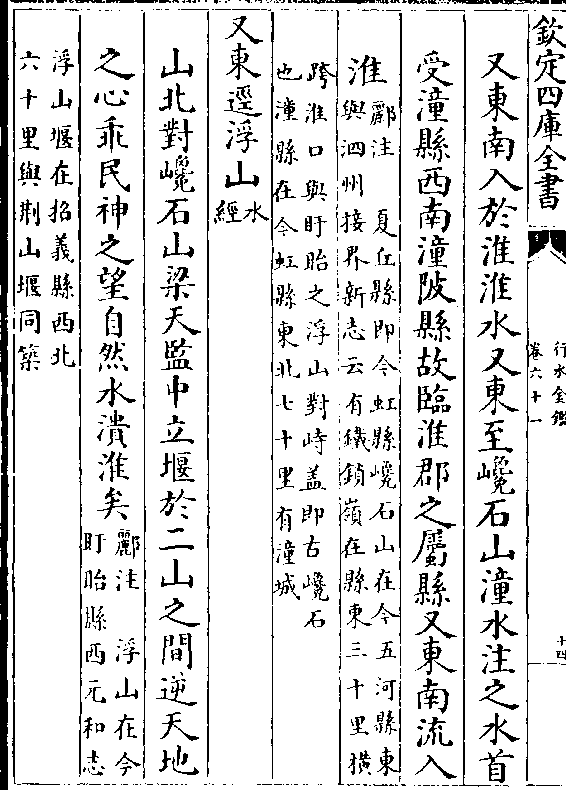 欽定四庫全書
行水金鑑
卷六十一
十四
又東南入於淮淮水又東至巉石山潼水注之水首
受潼縣西南潼陂縣故臨淮郡之屬縣又東南流入
淮
酈注 夏丘縣即今虹縣巉石山在今五河縣東
與泗州接界新志云有鐵鎖嶺在縣東三十里横
跨淮口與盱眙之浮山對峙盖即古巉石
也潼縣在今虹縣東北七十里有潼城
又東逕浮山
水
經
山北對巉石山梁天監中立堰於二山之間逆天地
之心乖民神之望自然水潰淮矣
酈注 浮山在今
盱眙縣西元和志
浮山堰在招義縣西北
六十里與荆山堰同築